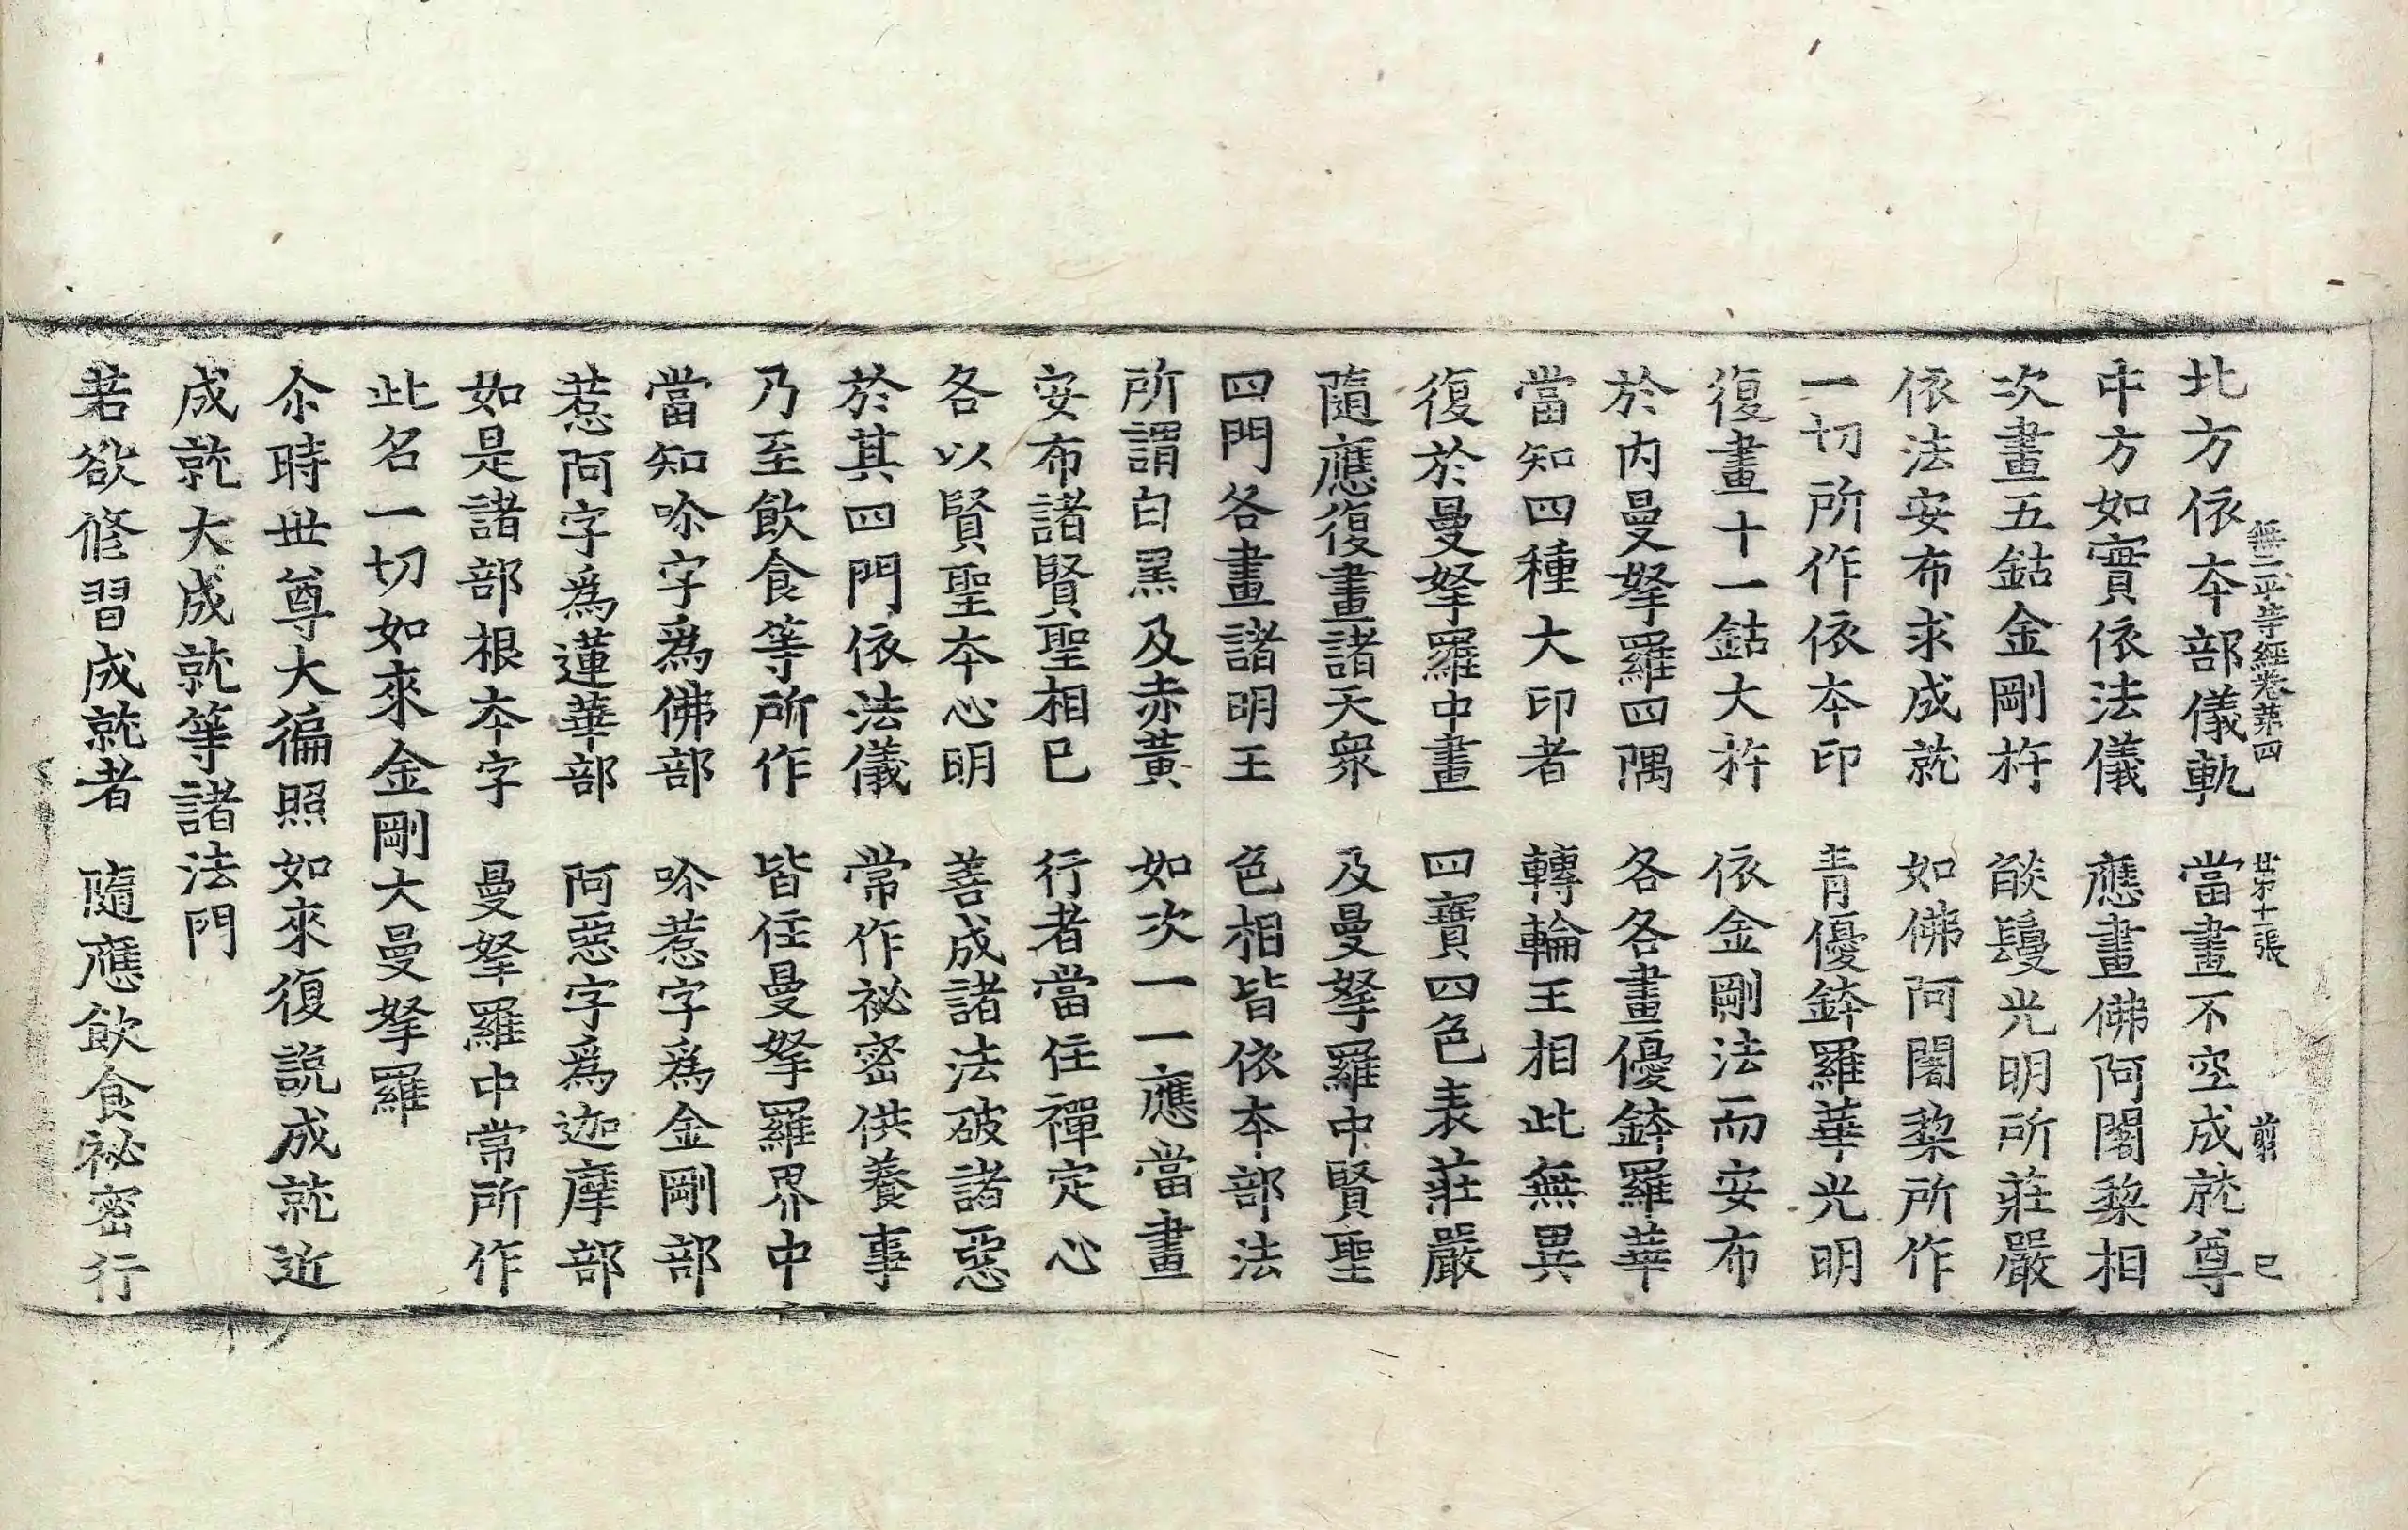 北方依本部儀軌　當畫不空成就尊
無二平等經卷第四　廿第十一張　剪　已
中方如實依法儀　應畫佛阿閦棃相
次畫五鈷金剛杵　燄鬘光明所莊嚴
依法安布求成就　如佛阿闍棃所作
一切所作依本印　青優鉢羅華光明
復畫十一鈷大杵　依金剛法而安布
於內曼拏羅四隅　各各畫優鉢羅華
當知四種大印者　轉輪王相此無異
復於曼拏羅中畫　四寶四色表莊嚴
隨應復畫諸天眾　及曼拏羅中賢聖
四門各畫諸明王　色相皆依本部法
所謂白黑及赤黃　如次一一應當畫
安布諸賢聖相已　行者當住禪定心
各以賢聖本心明　善成諸法破諸惡
於其四門依法儀　常作祕密供養事
乃至飲食等所作　皆住曼拏羅界中
當知㖿字為佛部　㖿惹字為金剛部
惹阿字為蓮華部　阿惡字為迦摩部
如是諸部根本字　曼拏羅中常所作
此名一切如來金剛大曼拏羅
尒時世尊大徧照如來復說成就近
成就大成就等諸法門
若欲修習成就者　隨應飲食祕密行